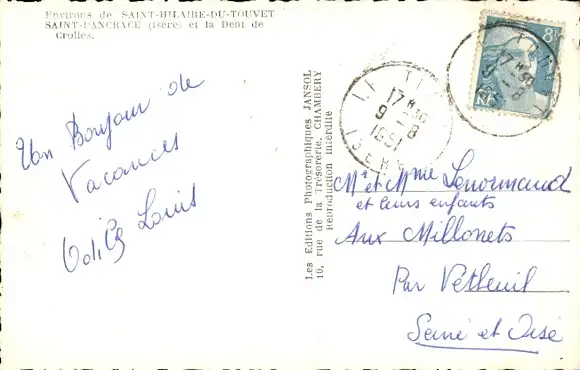 Environs de SAINT-HILAIRE-DU-TOUVET
SAINT-PANCRACE (Isère) et la Dent de
Crolles.
Un Bonjour de
Vacances
Odile Louis
Les Editions Photographiques JANSOL
10, rue de la Trésorerie, CHAMBERY
Reproduction interdite
8F
RF
17 H 30
9 - 8
1951
ISERE
Mr et Mme Lenormand
et leurs enfants
Aux Millonets
Par Vétheuil
Seine et Oise